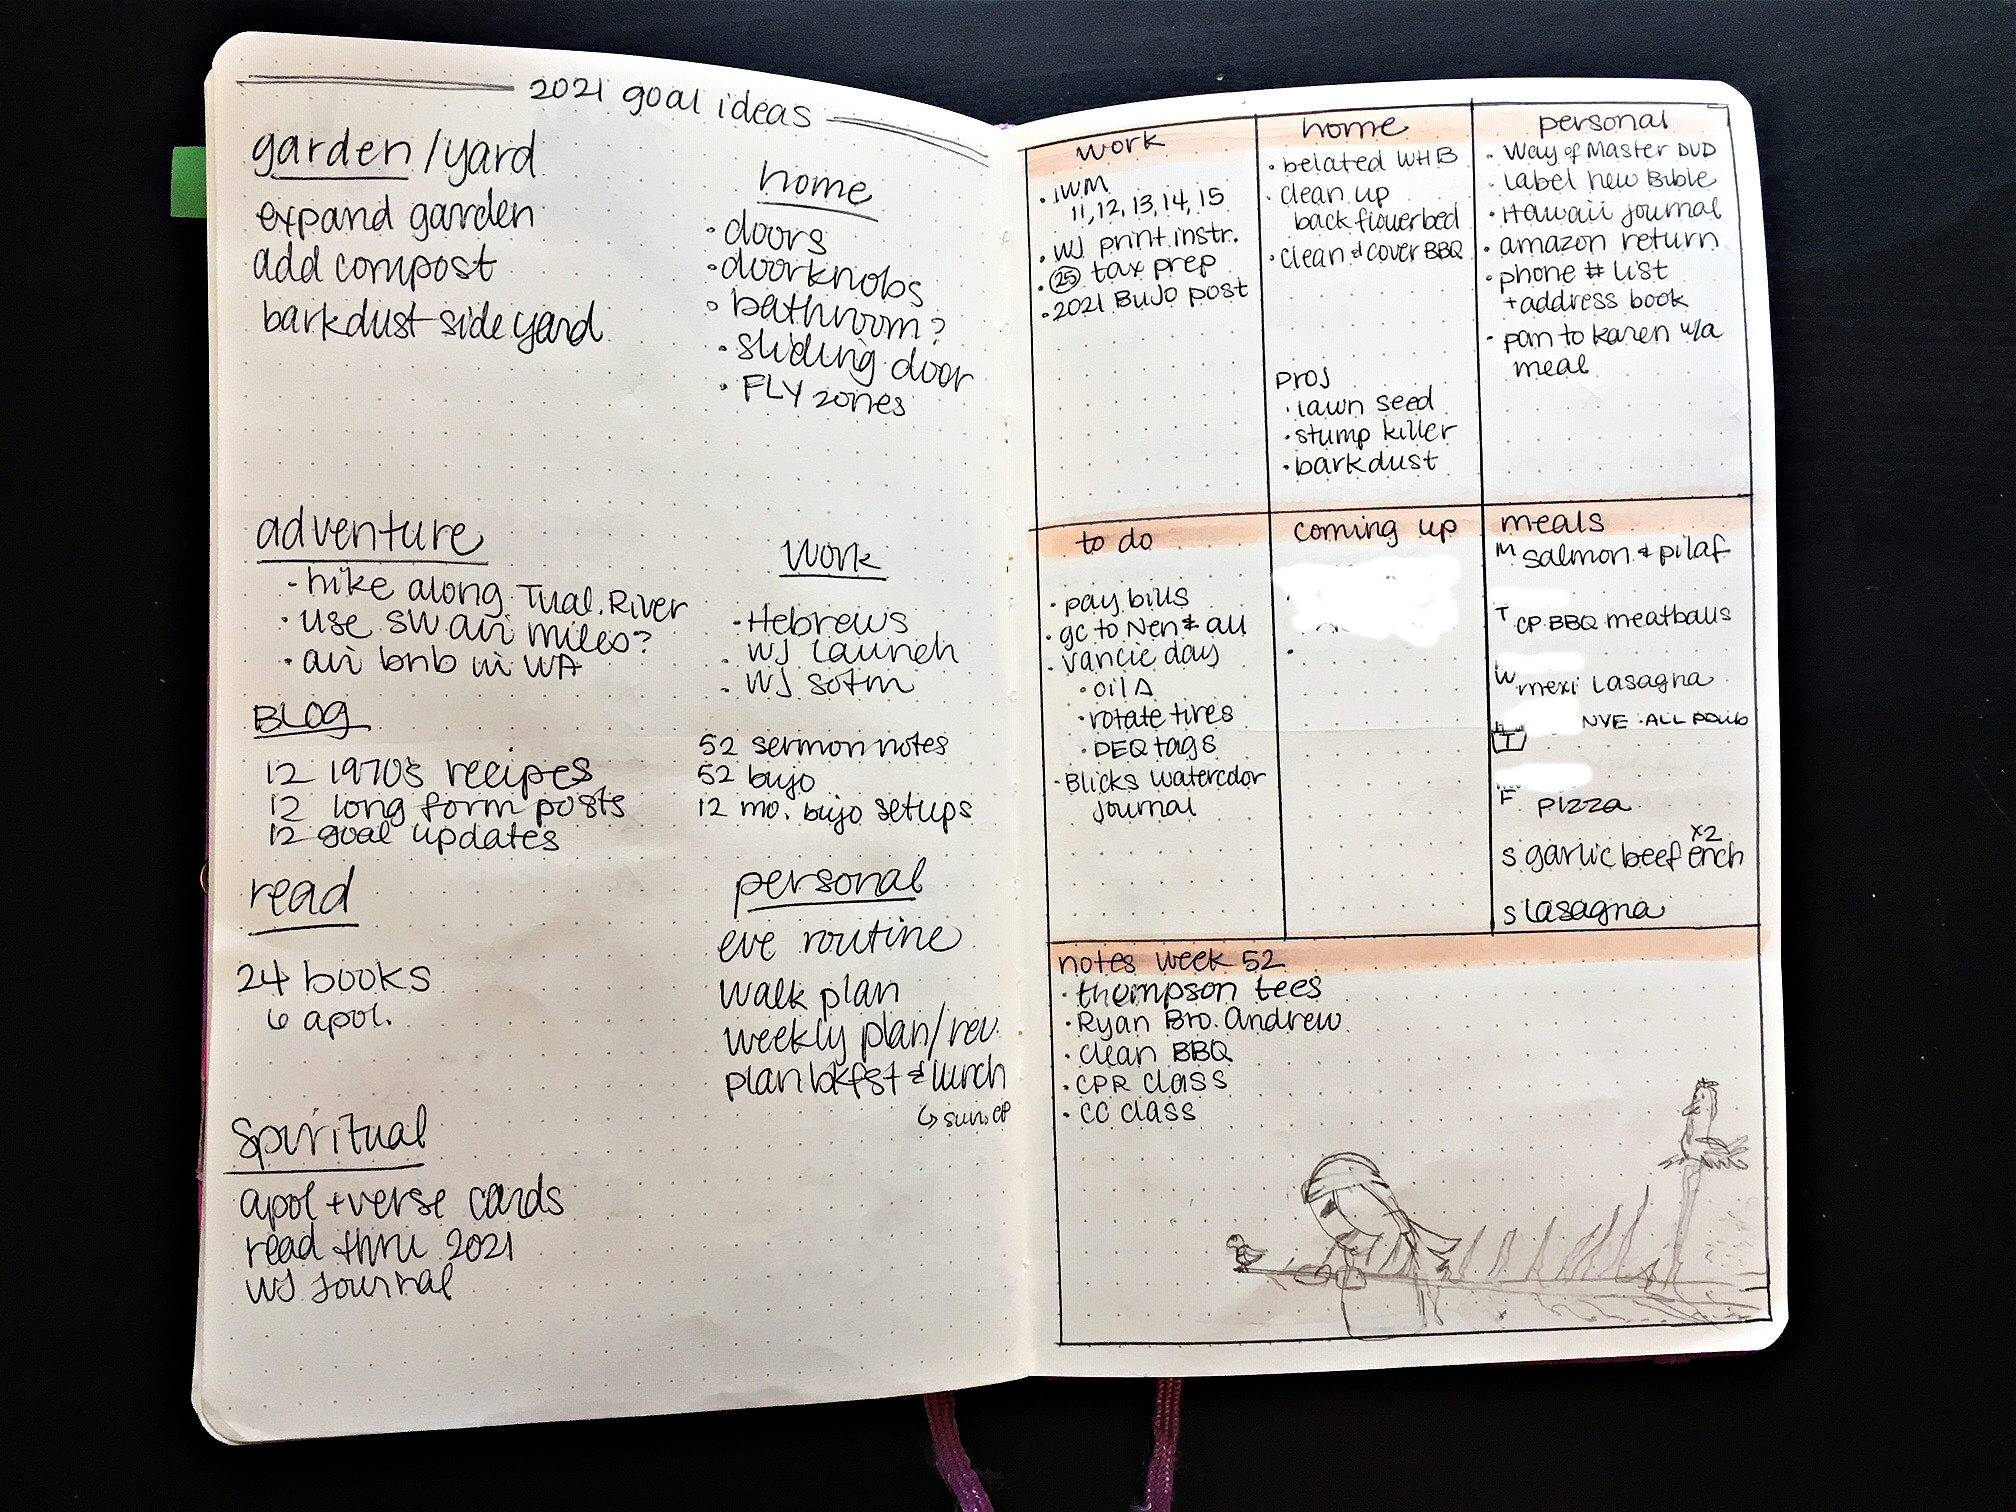 2021 goal ideas
garden/yard
expand garden
add compost
barkdust side yard
home
· doors
· doorknobs
· bathroom?
· sliding door
· FLY zones
adventure
- hike along Tual. River
· use SW air miles?
· air bnb in WA
work
· Hebrews
· WJ launch
· WJ sotm
BLOG
12 1970's recipes
12 long form posts
12 goal updates
52 sermon notes
52 bujo
12 mo. bujo setups
read
24 books
6 apol.
personal
eve routine
walk plan
weekly plan/rev.
plan bkfst & lunch
↳ sun. eP
spiritual
apol + verse cards
read thru 2021
WJ Journal
work
· IWM
11, 12, 13, 14, 15
· WJ print instr.
· 25 tax prep
· 2021 BUJO post
home
· belated WHB
· clean up
back flowerbed
· clean & cover BBQ
proj
· lawn seed
· stump killer
· barkdust
personal
· Way of Master DVD
· label new Bible
· Hawaii journal
· amazon return
· phone # list
+ address book
· pam to karen w/a
meal
to do
· pay bills
· gc to Nen & all
· vancie day
· oil Δ
· rotate tires
· DEQ tags
· Blicks watercolor
journal
coming up
meals
M salmon & pilaf
T CP BBQ meatballs
W mexi lasagna
T NYE · ALL
F pizza
S garlic beef ench x2
S lasagna
notes week 52
· thompson tees
· Ryan Bro. Andrew
· clean BBQ
· CPR class
· CC class